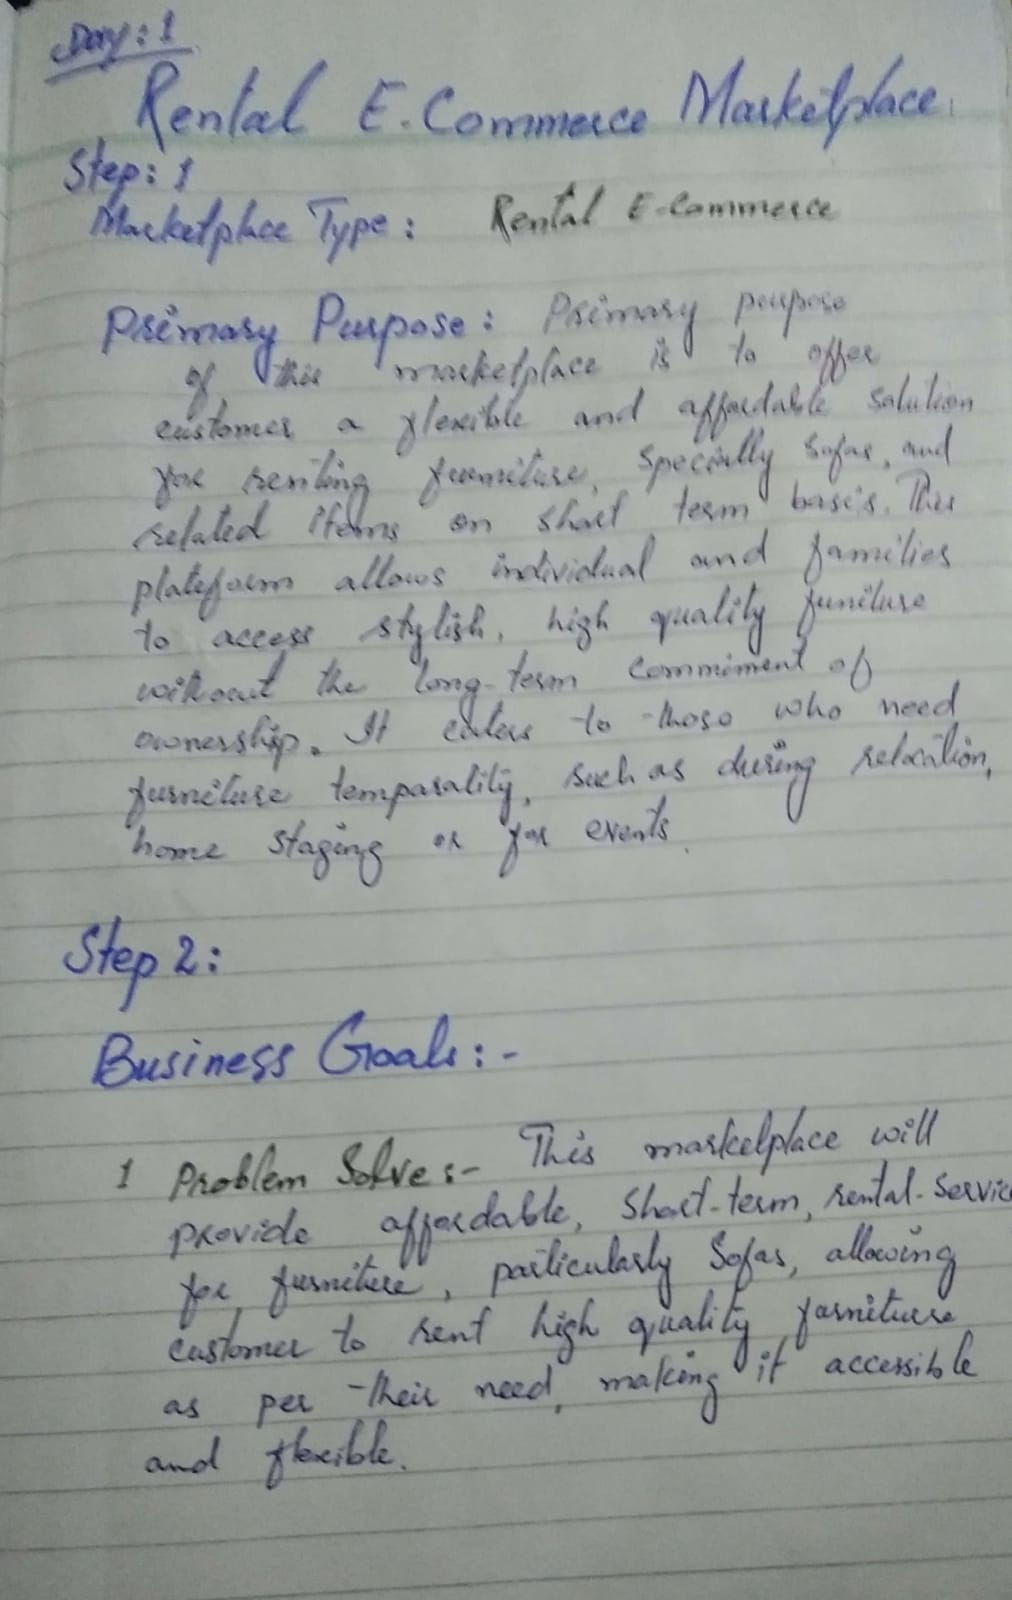 Day: 1
Rental E-Commerce Marketplace
Step: 1
Marketplace Type: Rental E-Commerce
Primary Purpose: Primary purpose
of this marketplace is to offer
customer a flexible and affordable solution
for renting furniture, specially sofas, and
related items on short term basis. This
plateform allows individual and families
to access stylish, high quality funiture
without the long-term commiment of
ownership. It caters to those who need
furniture temparality, such as during relocation,
home staging or for events.
Step 2:
Business Goals:-
1 Problem Solve:- This marketplace will
provide affordable, short-term, rental-servic
for furniture, particularly Sofas, allowing
customer to rent high quality furniture
as per their need, making it accessible
and flexible.